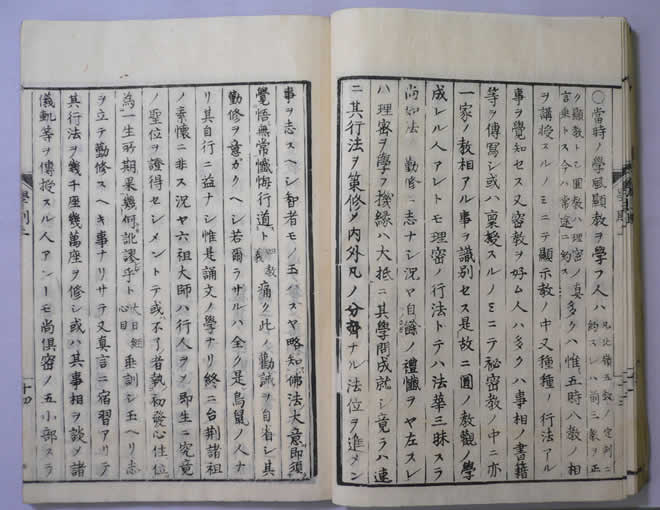 ○當時ノ學風顯教ヲ學フ人ハ
ク顯教トモ圓教ハ理密ノ
言無トス今ハ常途ニ約ス
多クハ惟五時八教ノ相
ヲ講授スルノミニテ顯示教ノ中又種種ノ行法アル
事ヲ覺知セス又密教ヲ好ム人ハ多クハ事相ノ書籍
等ヲ傳寫シ或ハ稟受スルノミニテ祕密教ノ中ニ亦
一家ノ教相アル事ヲ識別セス是故ニ圓ノ教觀ノ學
成レル人アレトモ理密ノ行法トテハ法華三昧スラ
尚如法ノ勤修ノ志ナシ況ヤ自餘ノ禮懺ヲヤ左スレ
ハ理密ヲ學フ機縁ハ大抵ニ其學問成就シ竟ラハ速
ニ其行法ヲ策修メ内外凡ノ分齊ナル法位ヲ進メン
事ヲ志スヘシ智者モノ玉ハスヤ略知佛法大意即須
覺悟無常懺悔行道ト
痛ク此ノ勸誡ヲ自省シ其
勤修ヲ意カクヘシ若爾ラサルハ全ク是鳥鼠ノ人ナ
リ其自行ニ益ナシ惟是誦文ノ學ナリ終ニ台荊諸祖
ノ素懷ニ非ス況ヤ六祖大師ハ行人ヲメ即生ニ究竟
ノ聖位ヲ證得セシメントテ或不了者執初發心住位
為一生所期果幾何訛謬乎ト
大日經
心目
垂訓シ玉ヘリ志
ヲ立テ勤修スヘキ事ナリサテ又真言ニ宿習アリテ
其行法ヲ幾千座幾萬座ヲ修シ或ハ其事相ヲ談メ諸
儀軌等ヲ傳授スル人アンーモ尚俱密ノ五小部スラ
十四